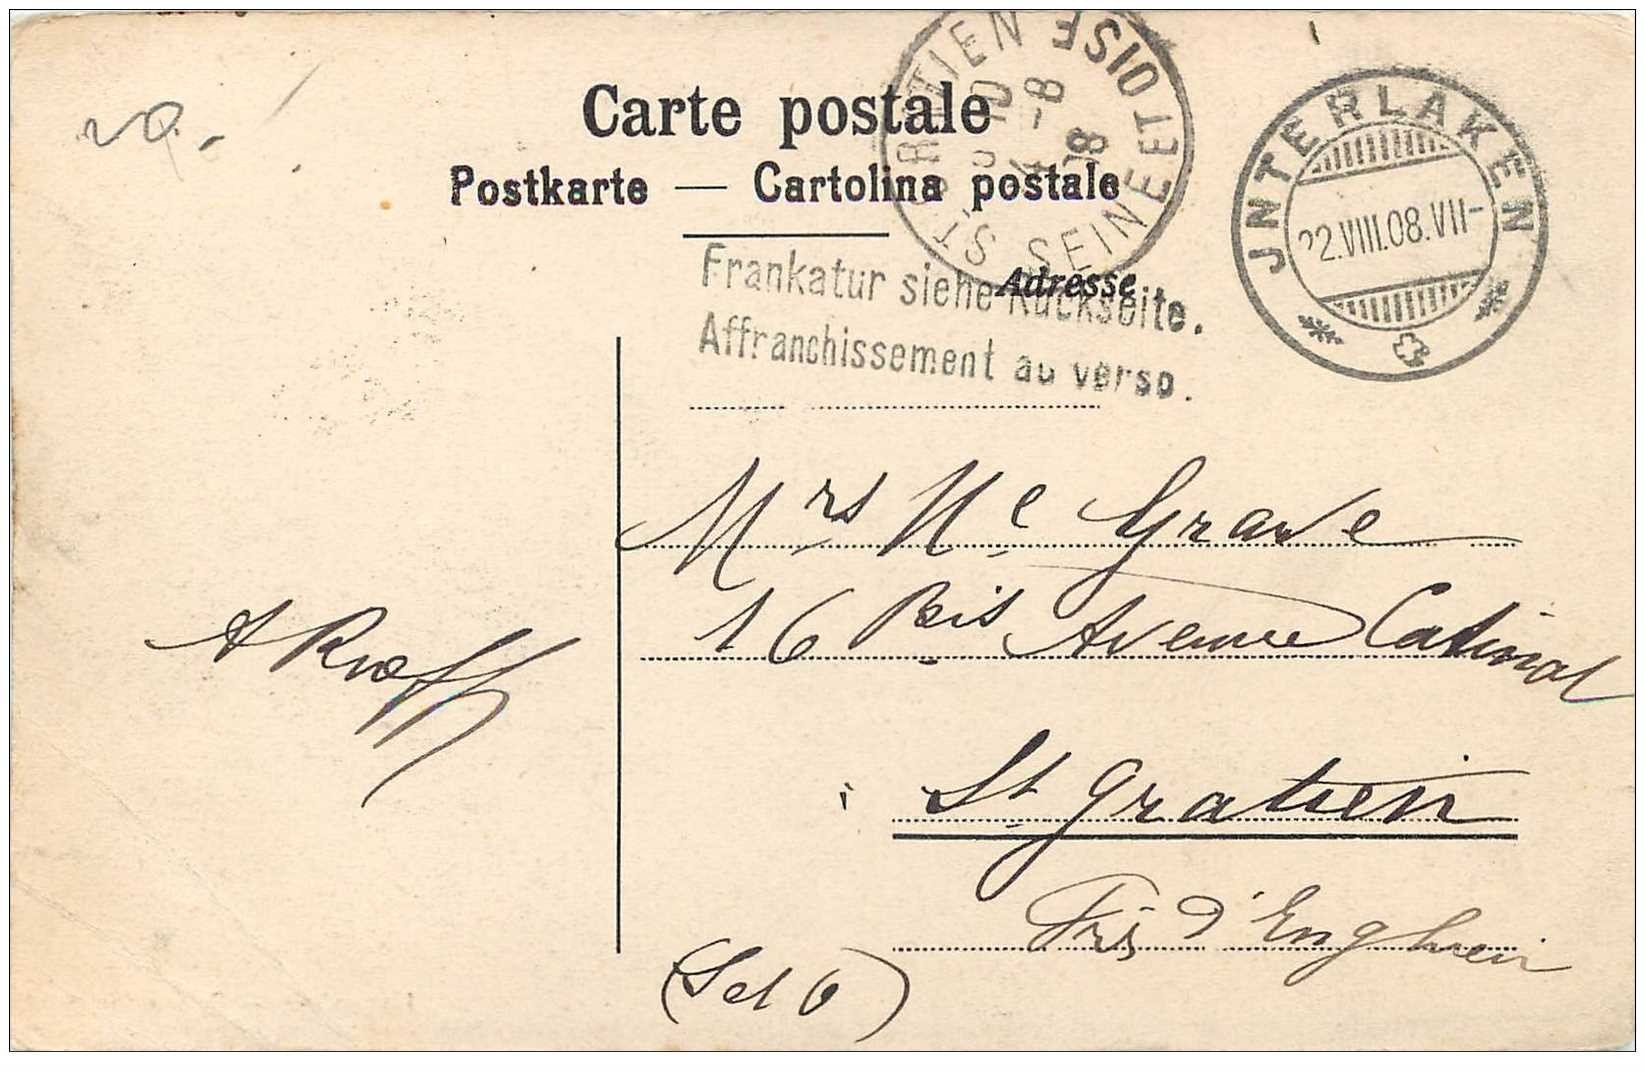 Carte postale
Postkarte — Cartolina postale
Adresse
ST GRATIEN
SEINE ET OISE
JNTERLAKEN
22.VIII.08.VII-
Frankatur siehe Rückseite.
Affranchissement au verso.
Mrs
Grave
16 Bis Avenue Catinat
St gratien
Près d'Enghien
(Set O)
20.